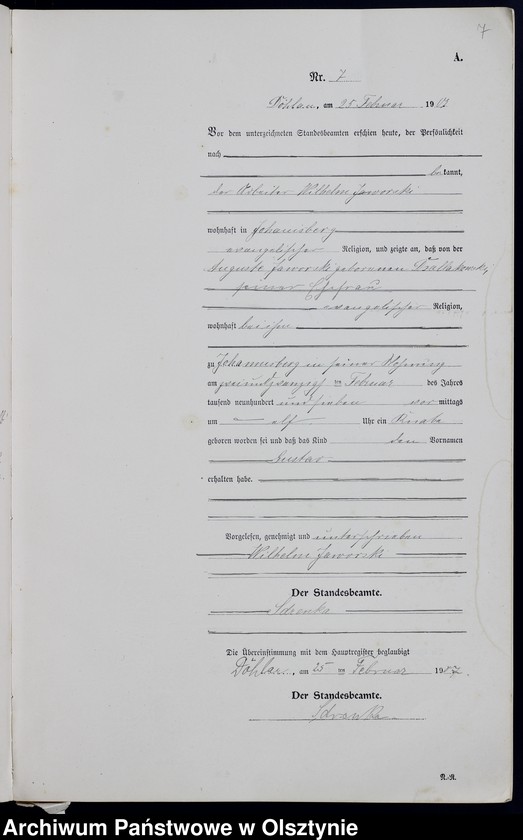 7
A.
Nr. 7
Döhlau, am 25 Februar 1907
Vor dem unterzeichneten Standesbeamten erschien heute, der Persönlichkeit
nach
bekannt,
der Arbeiter Wilhelm Jaworski
wohnhaft in Johannesberg
evangelischer Religion, und zeigte an, daß von der
Auguste Jaworski geborenen
seiner Ehefrau
evangelischer Religion,
wohnhaft bei ihm
zu Johannesberg in seiner Wohnung
am zweiundzwanzigsten Februar des Jahres
tausend neunhundert und sieben vormittags
um elf Uhr ein Knabe
geboren worden sei und daß das Kind den Vornamen
Gustav
erhalten habe.
Vorgelesen, genehmigt und unterschrieben
Wilhelm Jaworski
Der Standesbeamte.
Sdrenka
Die Übereinstimmung mit dem Hauptregister beglaubigt
Döhlau, am 25 ten Februar 1907.
Der Standesbeamte.
Sdrenka
A.-N.
Archiwum Państwowe w Olsztynie